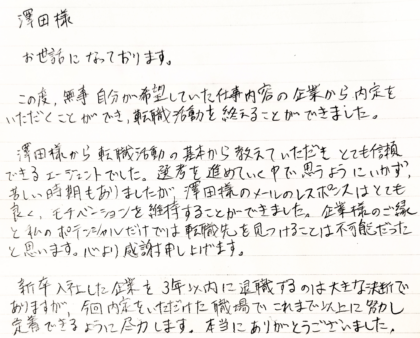 澤田様
お世話になっております。
この度、無事自分が希望していた仕事内容の企業から内定を
いただくことができ、転職活動を終えることができました。
澤田様から転職活動の基本から教えていただき とても信頼
できるエージェントでした。選考を進めていく中で思うようにいかず、
苦しい時期もありましたが 澤田様のメールのレスポンスはとても
良く、モチベーションを維持することができました。企業様のご縁
と私のポテンシャルだけでは転職先を見つけることは不可能だった
と思います。心より感謝申し上げます。
新卒入社した企業を3年以内に退職するのは大きな決断で
ありますが、今回内定をいただけた職場でこれまで以上に努力し
定着できるように尽力します。本当にありがとうございました。